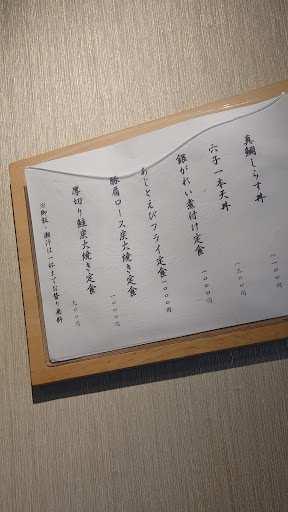 真鯛しらす丼　一一〇〇円
穴子一本天丼　一五〇〇円
銀がれい煮付け定食　一二〇〇円
あじとえびフライ定食　一〇〇〇円
豚肩ロース炭火焼き定食　一〇〇〇円
厚切り鮭炭火焼き定食　九〇〇円
※御飯・潮汁は一杯までお替り無料